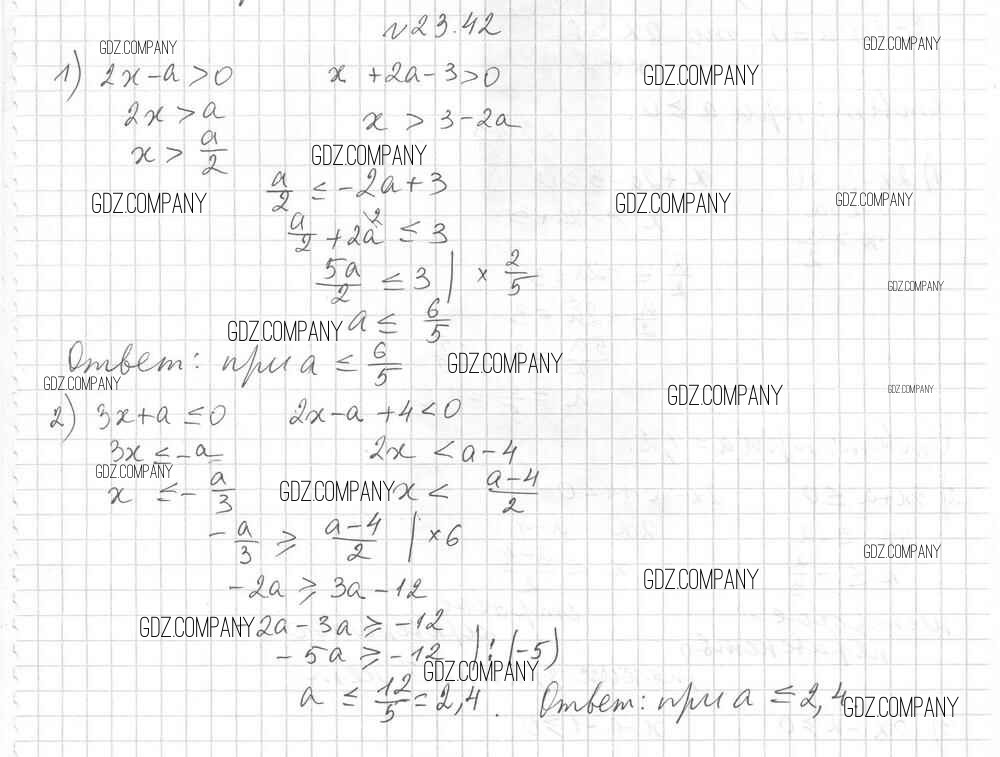 N 23.42
GDZ.COMPANY GDZ.COMPANY
1) 2x-a>0 x+2a-3>0 GDZ.COMPANY
2x>a x>3-2a
x> a/2 GDZ.COMPANY
GDZ.COMPANY a/2 ≤ -2a+3 GDZ.COMPANY GDZ.COMPANY
a/2 + 2a^2 ≤ 3
5a/2 ≤ 3 | × 2/5 GDZ.COMPANY
GDZ.COMPANY a ≤ 6/5
Ответ: при a ≤ 6/5 GDZ.COMPANY
GDZ.COMPANY GDZ.COMPANY GDZ.COMPANY
2) 3x+a ≤0 2x-a+4<0
3x ≤ -a 2x < a-4
GDZ.COMPANY
x ≤ - a/3 GDZ.COMPANY x < a-4/2
- a/3 ≥ a-4/2 | ×6 GDZ.COMPANY
-2a ≥ 3a-12 GDZ.COMPANY
GDZ.COMPANY -2a-3a ≥ -12
-5a ≥ -12 | : (-5)
GDZ.COMPANY
a ≤ 12/5 = 2,4. Ответ: при a ≤ 2,4 GDZ.COMPANY